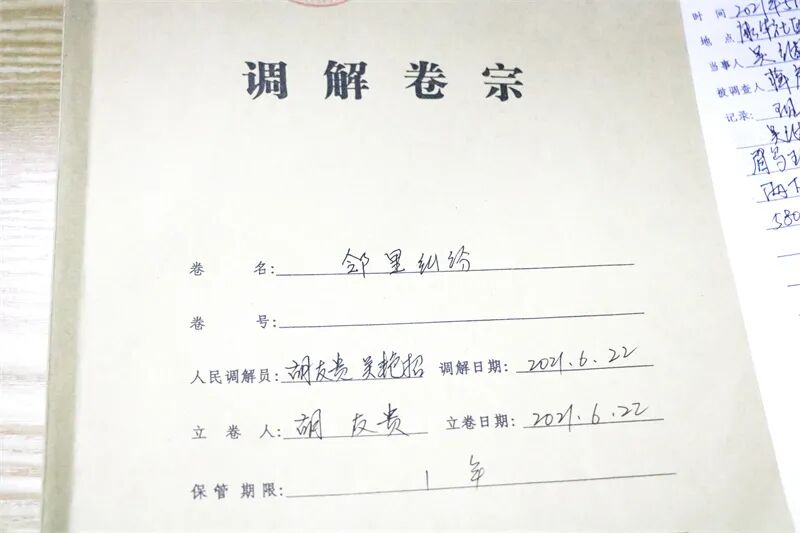 调解卷宗
卷 名: 邻里纠纷
卷 号:
人民调解员: 胡友贵 吴艳招 调解日期: 2021.6.22
立 卷 人: 胡友贵 立卷日期: 2021.6.22
保管期限: 1年
时 间 2021年5月
地 点
当事人 吴
被调查人
记录:
580